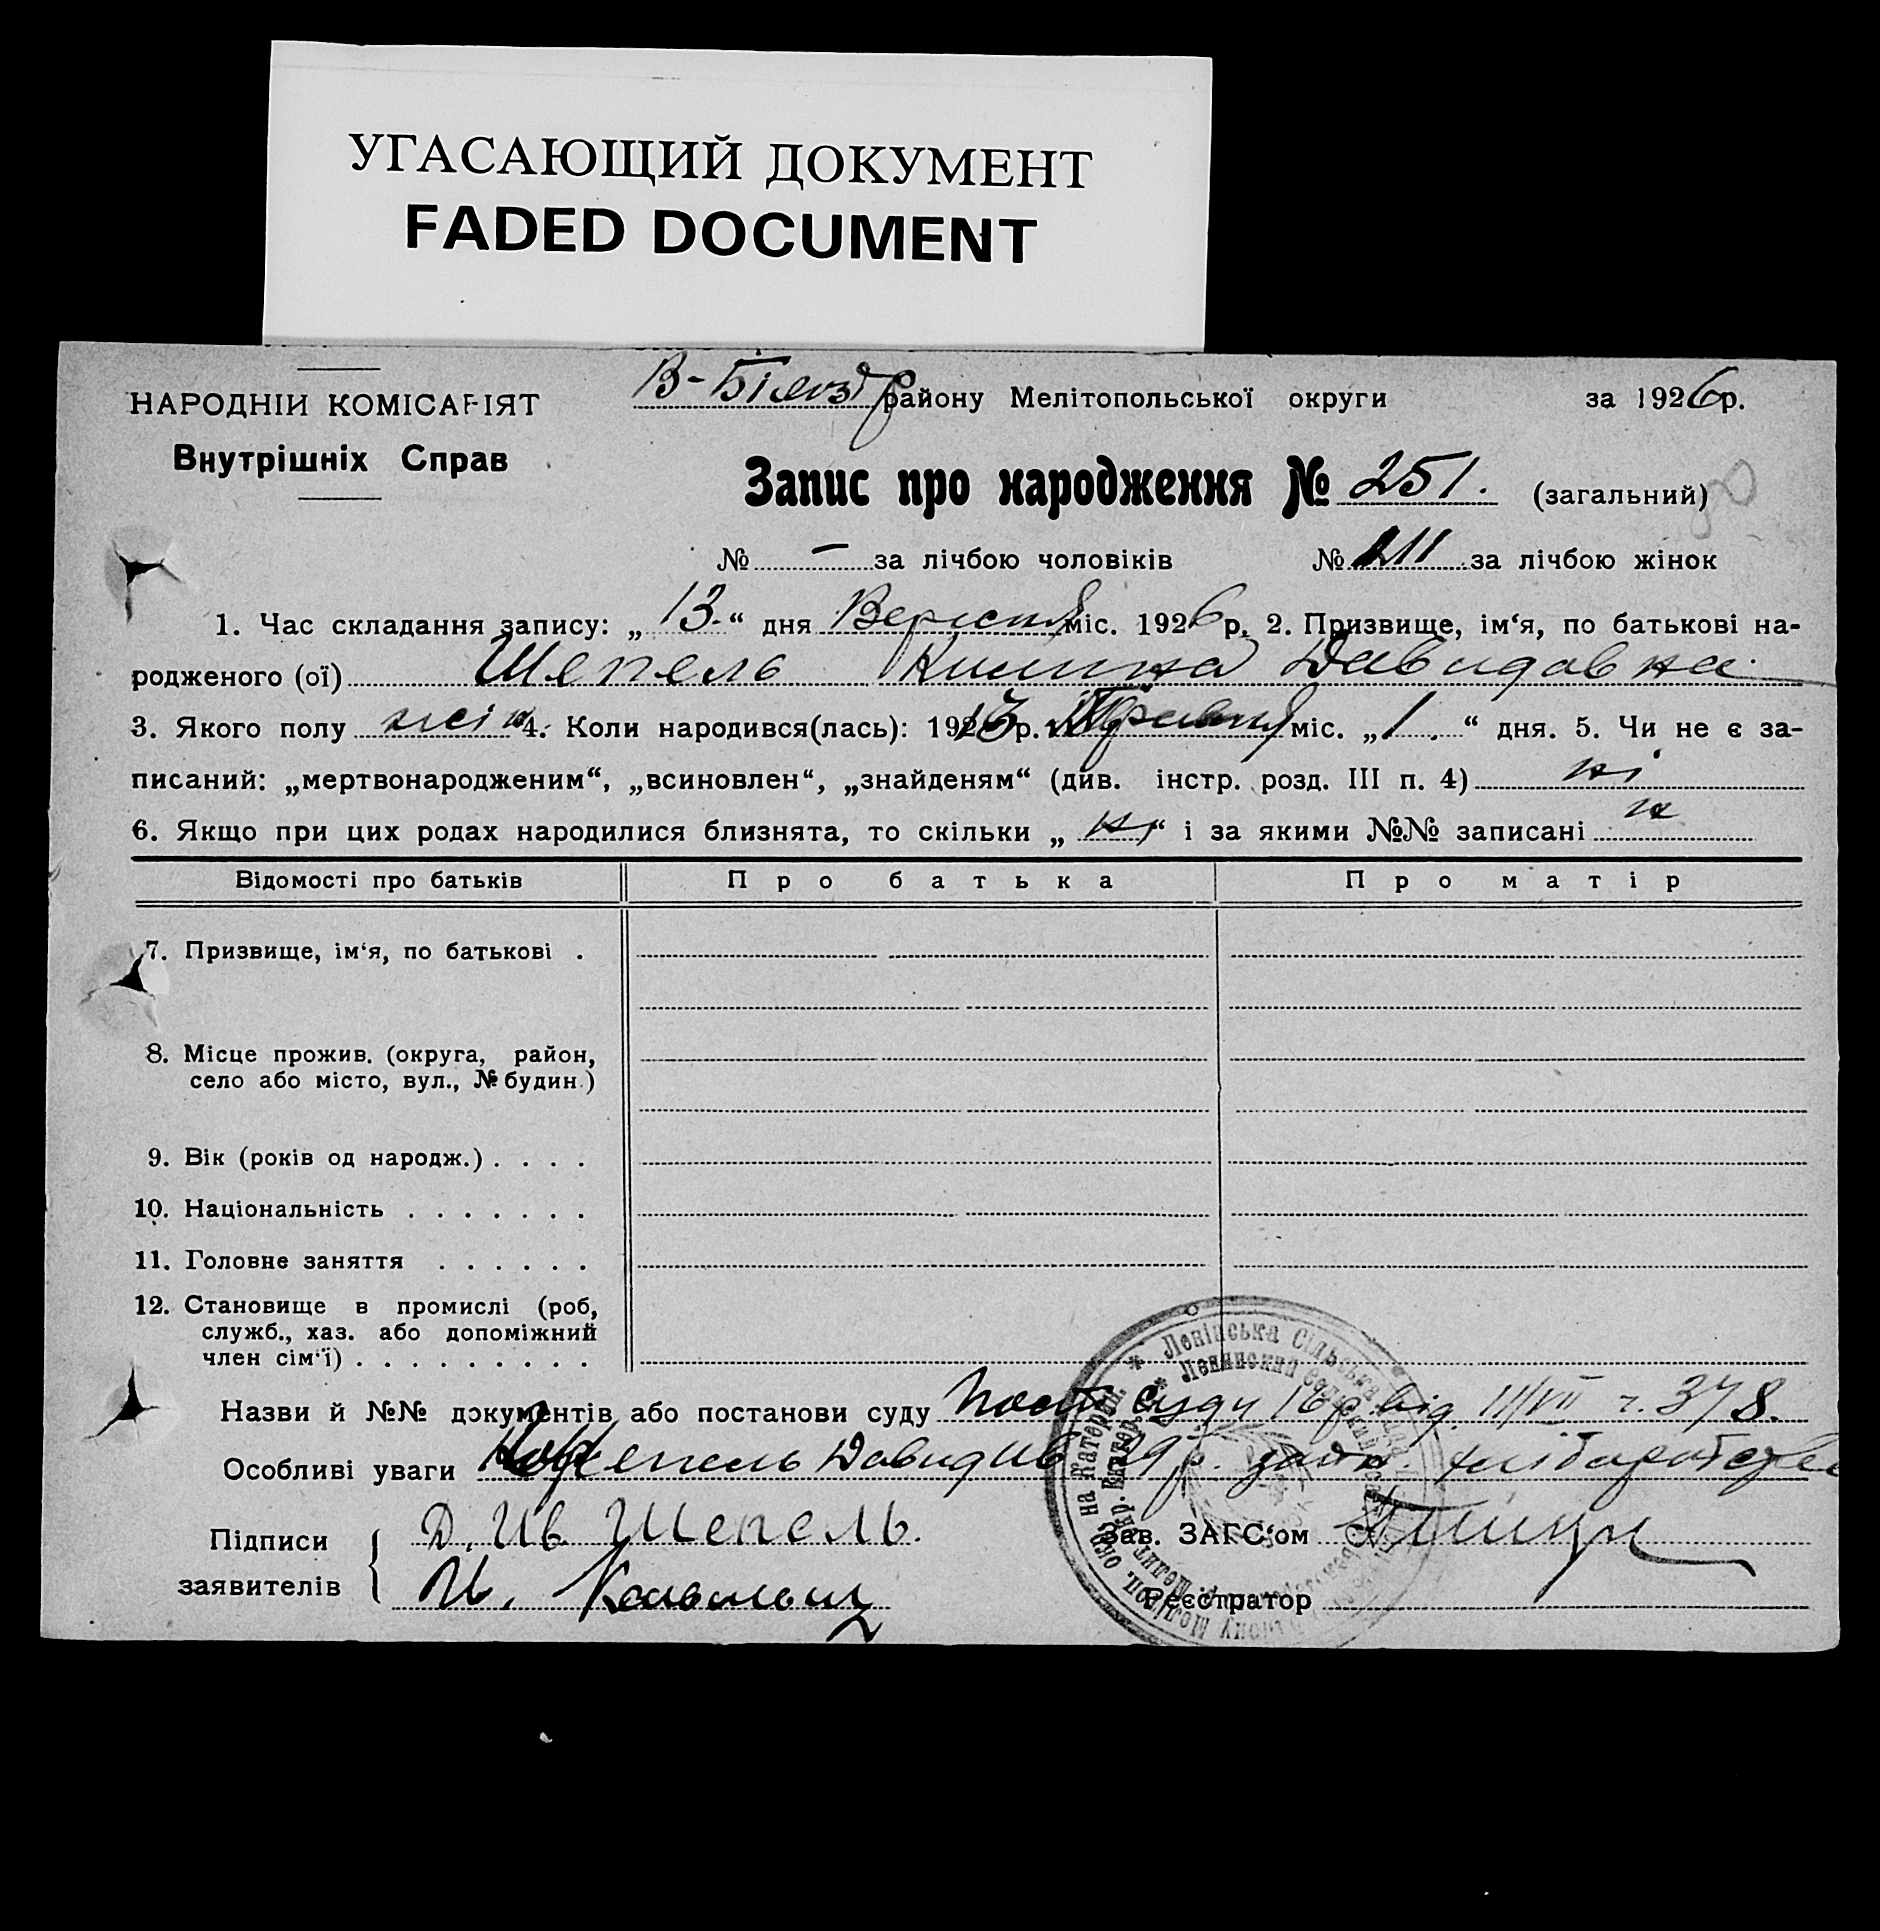 УГАСАЮЩИЙ ДОКУМЕНТ
FADED DOCUMENT
НАРОДНІЙ КОМІСАРІЯТ
Внутрішніх Справ
В-Білозір району Мелітопольської округи за 1926 р.
Запис про народження № 251. (загальний)
№ – за лічбою чоловіків № 211 за лічбою жінок
1. Час складання запису: „ 13. “ дня Вересня міс. 1926 р. 2. Призвище, ім‘я, по батькові на-
родженого (ої) Шепель Давидовна
3. Якого полу жін 4. Коли народився(лась): 1913 р. Травня міс. „ 1. “ дня. 5. Чи не є за-
писаний: „мертвонародженим“, „всиновлен“, „знайденям“ (див. інстр. розд. III п. 4) ні
6. Якщо при цих родах народилися близнята, то скільки „ “ і за якими №№ записані
Відомості про батьків Про батька Про матір
7. Призвище, ім‘я, по батькові .
8. Місце прожив. (округа, район,
село або місто, вул., № будин.)
9. Вік (років од народж.) . . . .
10. Національність . . . . . . .
11. Головне заняття . . . . . .
12. Становище в промислі (роб,
служб., хаз. або допоміжний
член сім‘ї) . . . . . . . . .
Назви й №№ документів або постанови суду Пост Суду 16 р від III/VII ч. 378.
Особливі уваги Шепель Давид Ив 29 р. хліборобство
Підписи
заявителів
Д. Ив. Шепель.
И.
Зав. ЗАГС‘ом
Реєстратор
Ленінська Сільська
Ленинский
на Катерин.